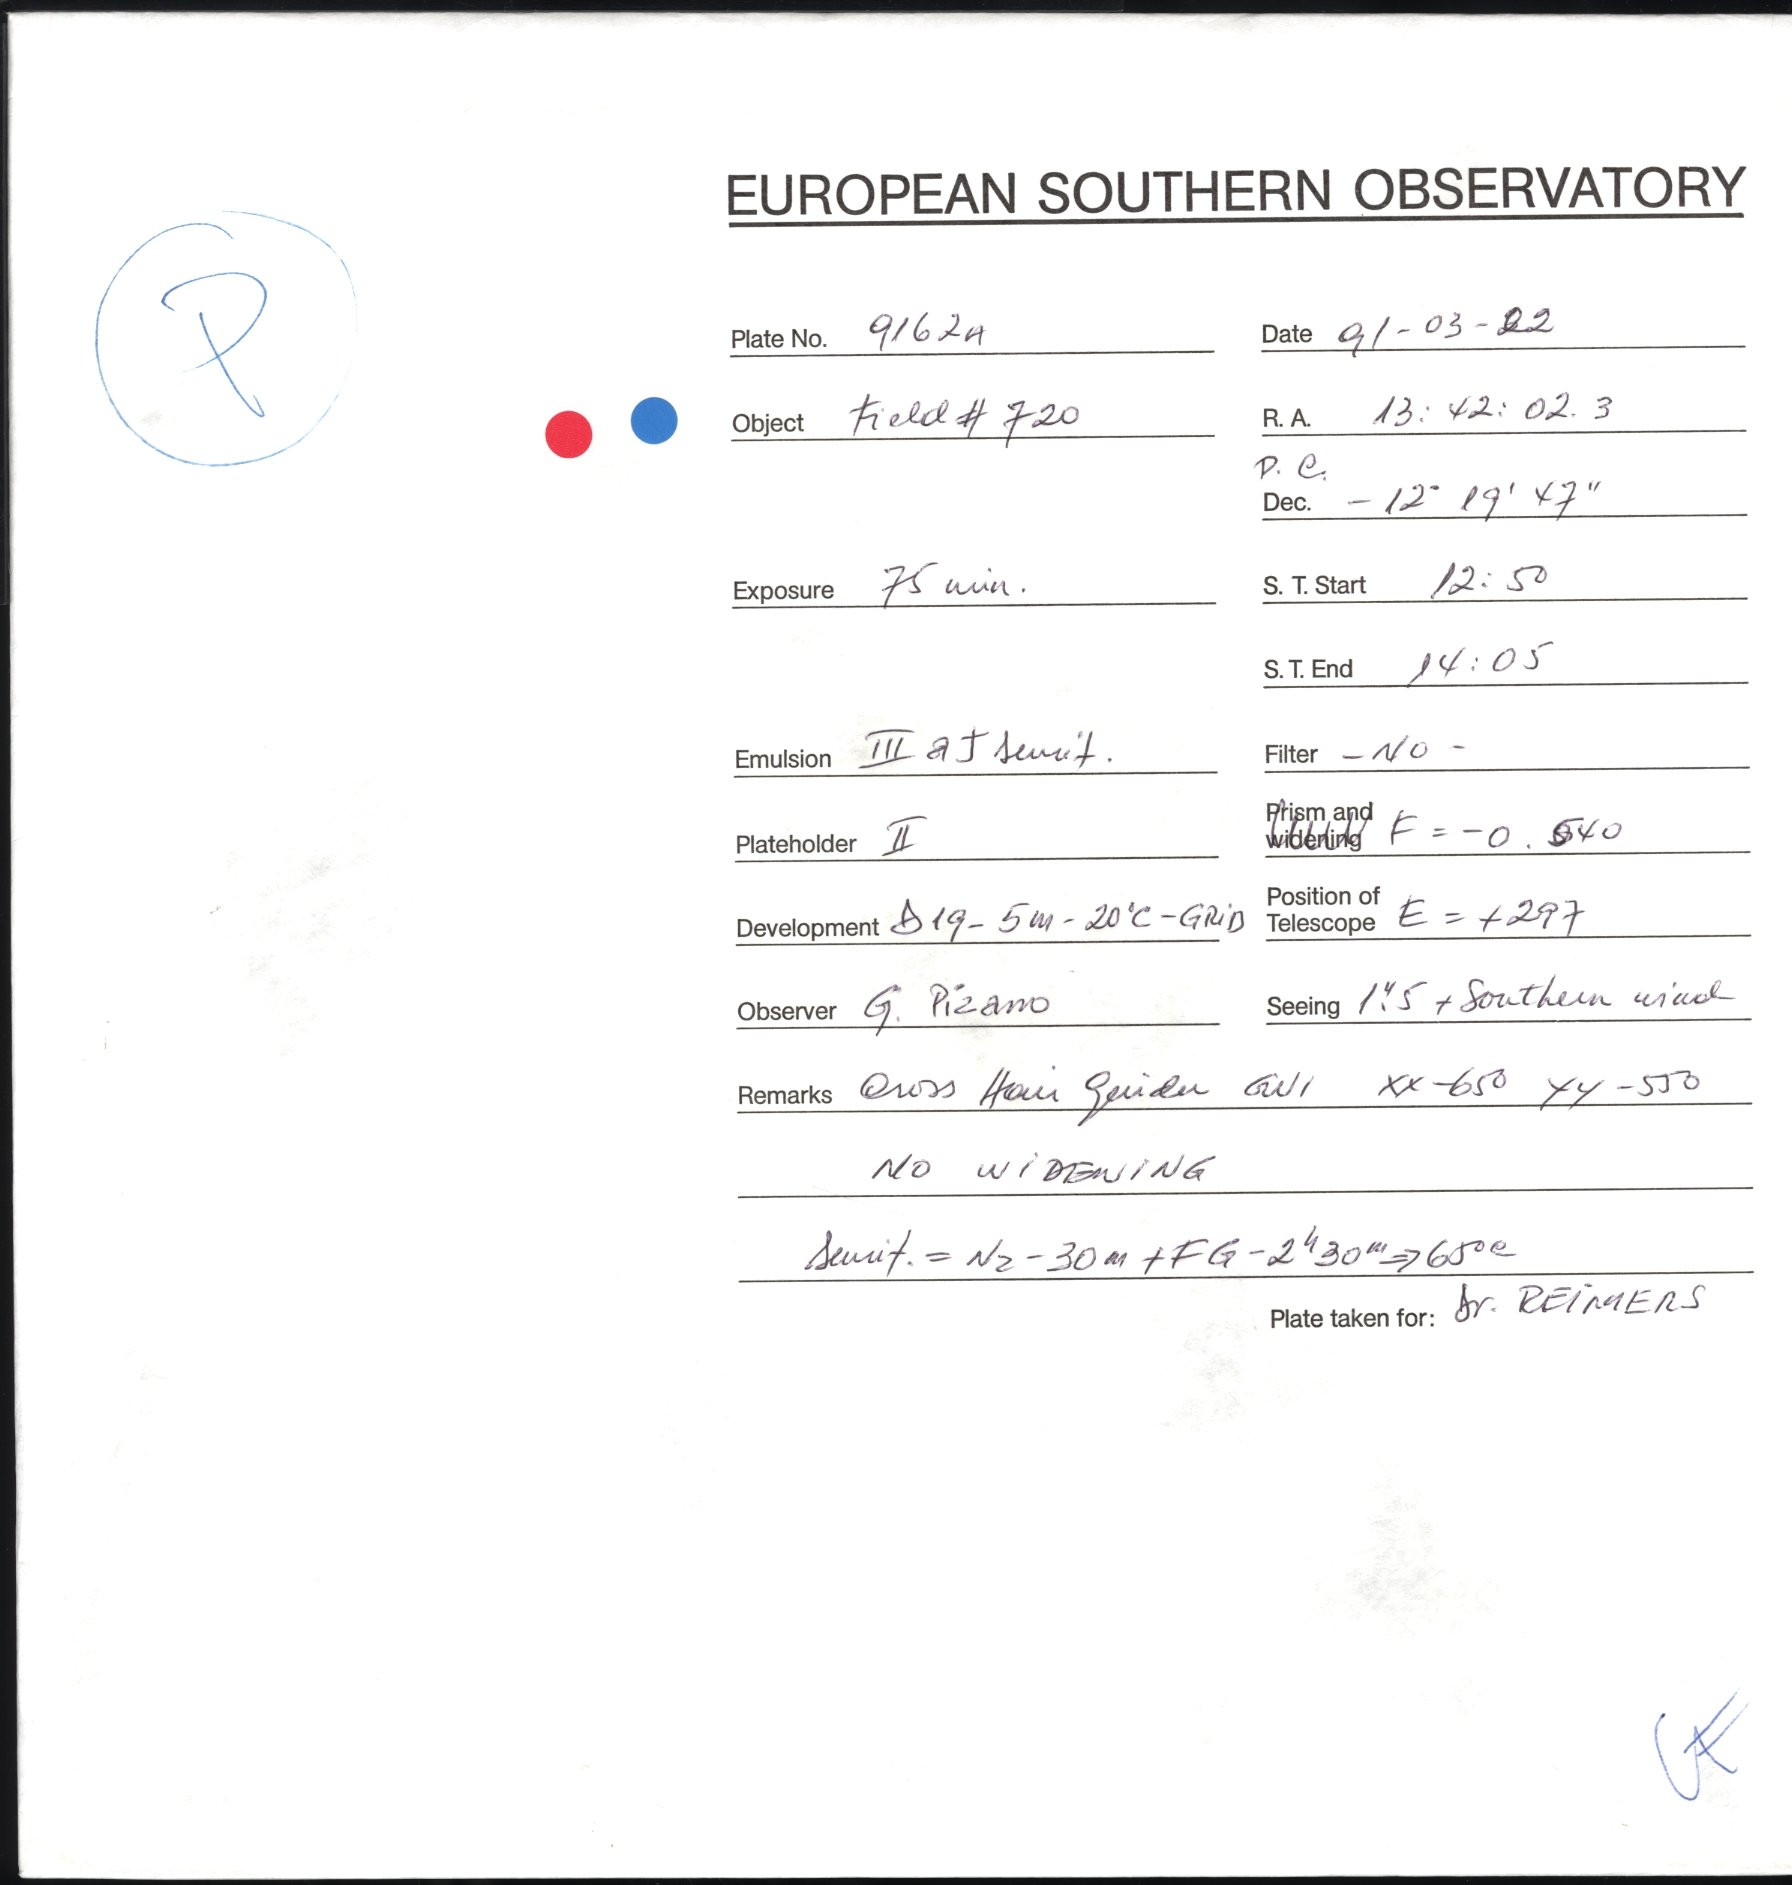 EUROPEAN SOUTHERN OBSERVATORY
P
Plate No. 9162A Date 91-03-22
Object Field # 720 R. A. 13: 42: 02. 3
P. C.
Dec. - 12° 19' 47"
Exposure 75 min. S. T. Start 12: 50
S. T. End 14: 05
Emulsion III aJ sensit. Filter - NO -
Plateholder II Prism and widening F = -0. 540
Development D 19- 5m - 20°C - GRID Position of Telescope E = +297
Observer G. Pizarro Seeing 1".5 + Southern wind
Remarks Cross Hair Guider GW1 XX -650 YY -550
NO WIDENING
Sensit. = N2 - 30m + FG - 2h30m => 65°C
Plate taken for: Dr. REIMERS